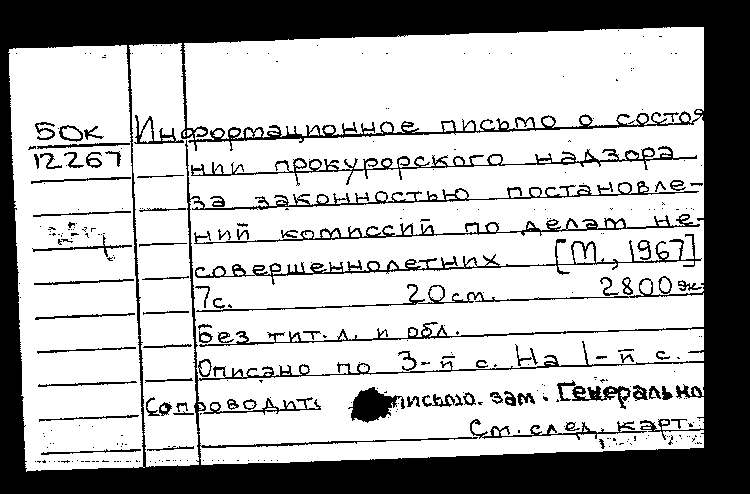 БОК
12267
Информационное письмо о состоя
нии прокурорского надзора
за законностью постановле-
ний комиссий по делам не-
совершеннолетних. [М., 1967]
7с. 20см. 2800 эк
Без тит. л. и обл.
Описано по 3-й с. На 1-й с. -
Сопроводит. письмо. зам. Генерально
См. след. карт.